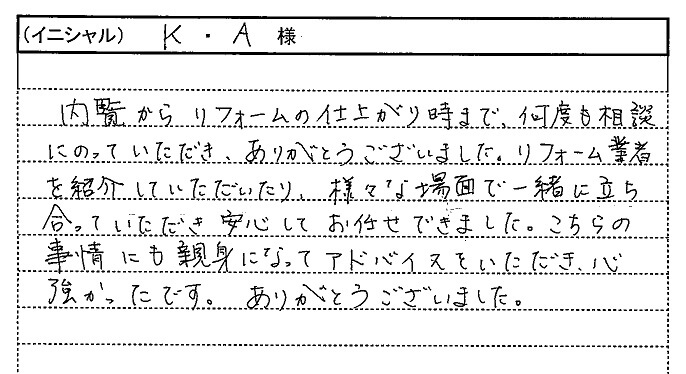 (イニシャル) K・A 様
内覧からリフォームの仕上がり時まで、何度も相談
にのっていただき、ありがとうございました。リフォーム業者
を紹介していただいたり、様々な場面で一緒に立ち
合っていただき安心してお任せできました。こちらの
事情にも親身になってアドバイスをいただき、心
強かったです。ありがとうございました。